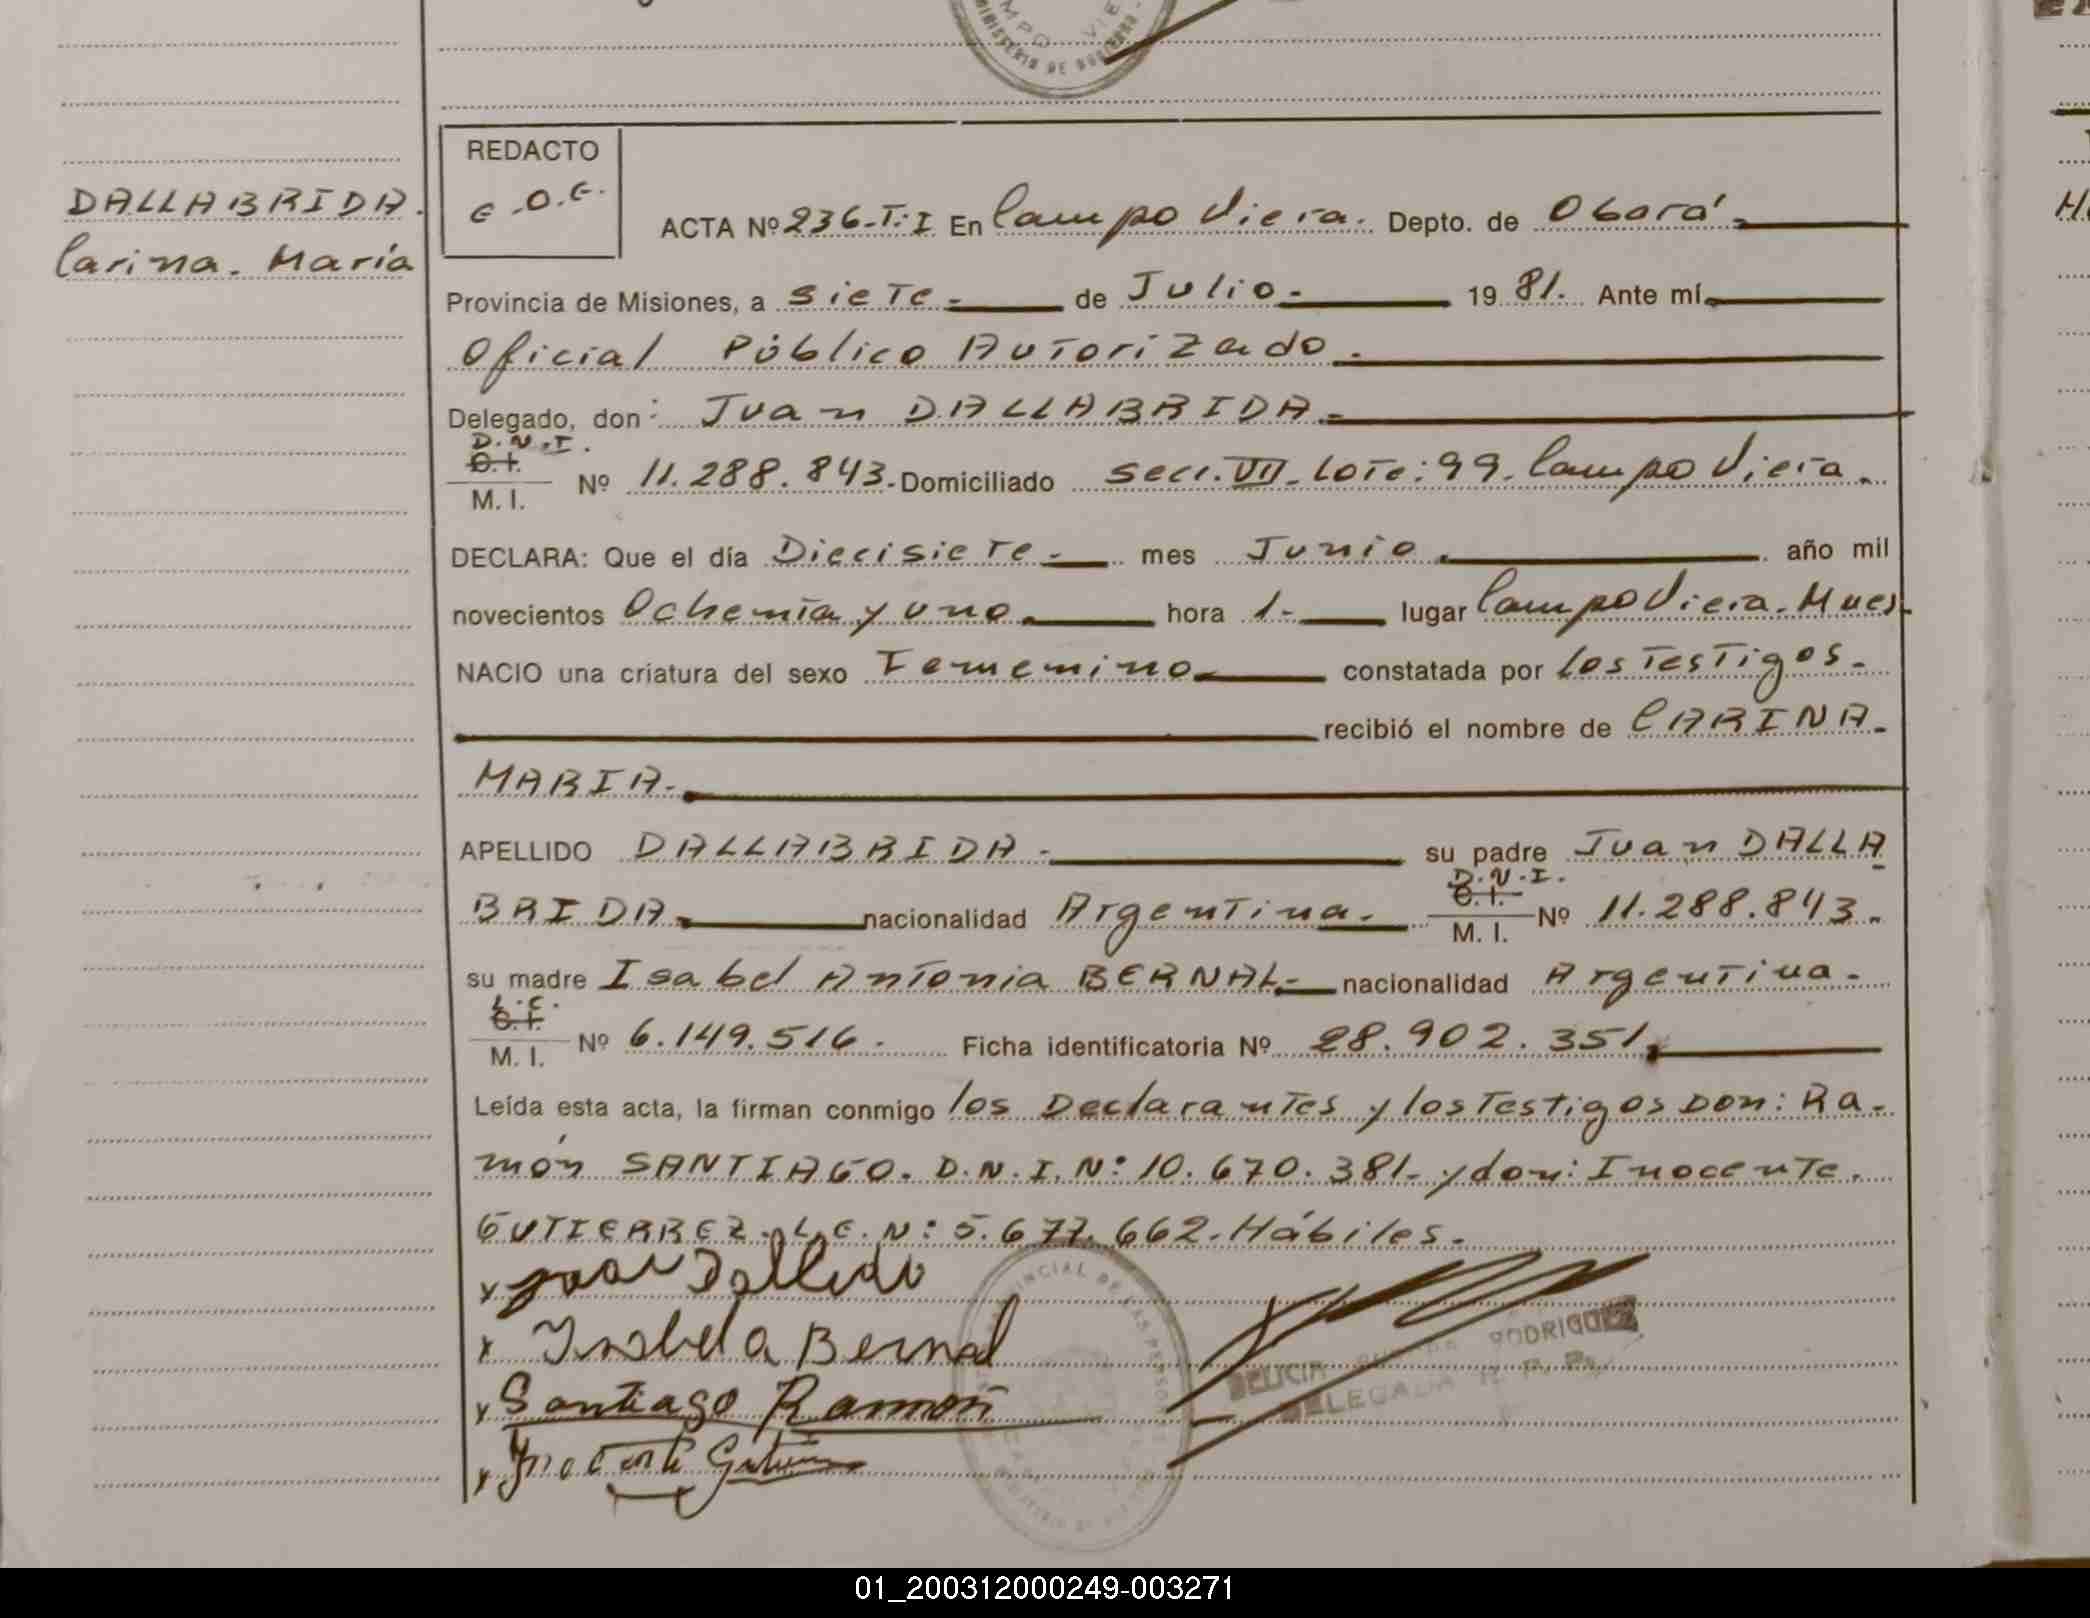 DALLABRIDA.
Carina. María
REDACTO
E.O.E.
ACTA Nº 236-T:I En Campo Viera. Depto. de Oberá.
Provincia de Misiones, a siete- de Julio.- 1981. Ante mí
Oficial Público Autorizado.
Delegado, don: Juan DALLABRIDA.-
D.N.I.
C.I.
M. I. Nº 11.288.843. Domiciliado Secc. VII. Lote: 99. Campo Viera.
DECLARA: Que el día Diecisiete- mes Junio. año mil
novecientos Ochenta y uno. hora 1- lugar Campo Viera. Mnes.
NACIO una criatura del sexo Femenino constatada por los Testigos.
recibió el nombre de CARINA.
MARIA.
APELLIDO DALLABRIDA. su padre Juan DALLA
D.N.I.
C.I.
BRIDA. nacionalidad Argentina. M. I. Nº 11.288.843.
su madre Isabel Antonia BERNAL- nacionalidad Argentina.
L.C.
C.I.
M. I. Nº 6.149.516. Ficha identificatoria Nº 28.902.351.
Leída esta acta, la firman conmigo los Declarantes y los Testigos Don: Ra-
món SANTIAGO. D.N.I. N: 10.670.381. y don: Inocente.
GUTIERREZ. L.E. N: 5.677.662. Hábiles.
x Juan
x Bernal
x Santiago Ramón
x
RODRIGUEZ
DELEGADA
01_200312000249-003271